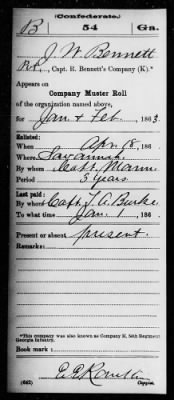 (Confederate.)
B 54 Ga.
J. W. Bennett
Pvt., Capt. R. Bennett's Company (K).*
Appears on
Company Muster Roll
of the organization named above,
for Jan & Feb, 1863.
Enlisted:
When Apr 18, 186
Where Savannah
By whom Capt. Mann
Period 3 years
Last paid:
By whom Capt. J. A. Burke
To what time Jan. 1, 186
Present or absent present.
Remarks:
*This company was also known as Company K, 56th Regiment
Georgia Infantry.
Book mark:
(642)
Copyist.